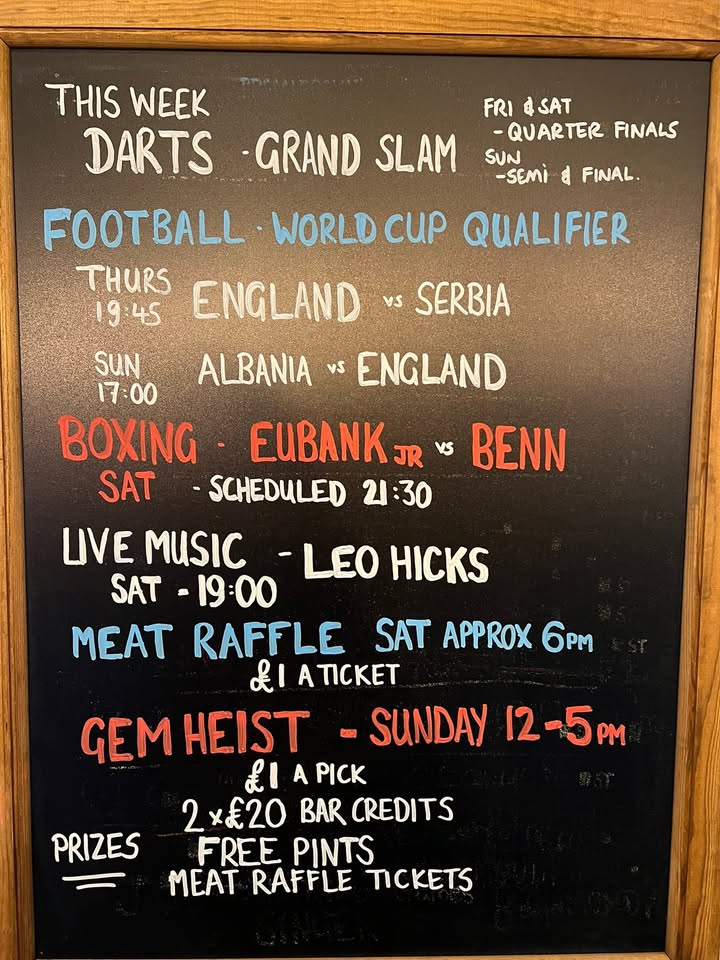 THIS WEEK
DARTS - GRAND SLAM
FRI & SAT
- QUARTER FINALS
SUN
- SEMI & FINAL.
FOOTBALL - WORLD CUP QUALIFIER
THURS
19:45 ENGLAND vs SERBIA
SUN
17:00 ALBANIA vs ENGLAND
BOXING - EUBANK JR vs BENN
SAT - SCHEDULED 21:30
LIVE MUSIC - LEO HICKS
SAT - 19:00
MEAT RAFFLE SAT APPROX 6PM
£1 A TICKET
GEM HEIST - SUNDAY 12-5PM
£1 A PICK
2 x £20 BAR CREDITS
PRIZES FREE PINTS
MEAT RAFFLE TICKETS